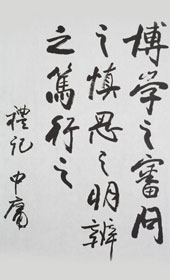 博学之審问
之慎思之明辨
之篤行之
禮記 中庸